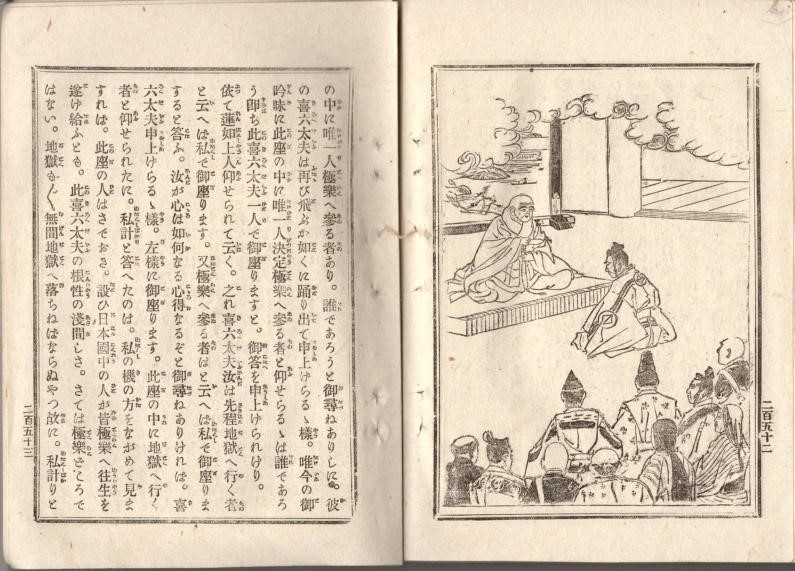 二百五十二
の中に唯一人極樂へ參る者あり。誰であろうと御尋ねありしに。彼
の喜六太夫は再び飛ぶが如くに踊り出て申上けらるゝ樣。唯今の御
吟味に此座の中に唯一人決定極樂へ參る者と仰せらるゝは誰であろ
う卽ち此喜六太夫一人で御座りますと。御答を申上けられけり。
依て蓮如上人仰せられて云く。之れ喜六太夫汝は先程地獄へ行く者
と云へは私で御座ります。又極樂へ參る者はと云へは私で御座りま
すると答ふ。汝が心は如何なる心得なるぞと御尋ねありければ。喜
六太夫申上けらるゝ樣。左樣に御座ります。此座の中に地獄へ行く
者と仰せられたに。私計と答へたのは。私の機の方をながめて見ま
すれは。此座の人はさておき。設ひ日本國中の人が皆極樂へ往生を
遂け給ふとも。此喜六太夫の根性の淺間しさ。さては極樂さころで
はない。地獄も〱無間地獄へ落ちねばならぬやつ故に。私計りと
二百五十三